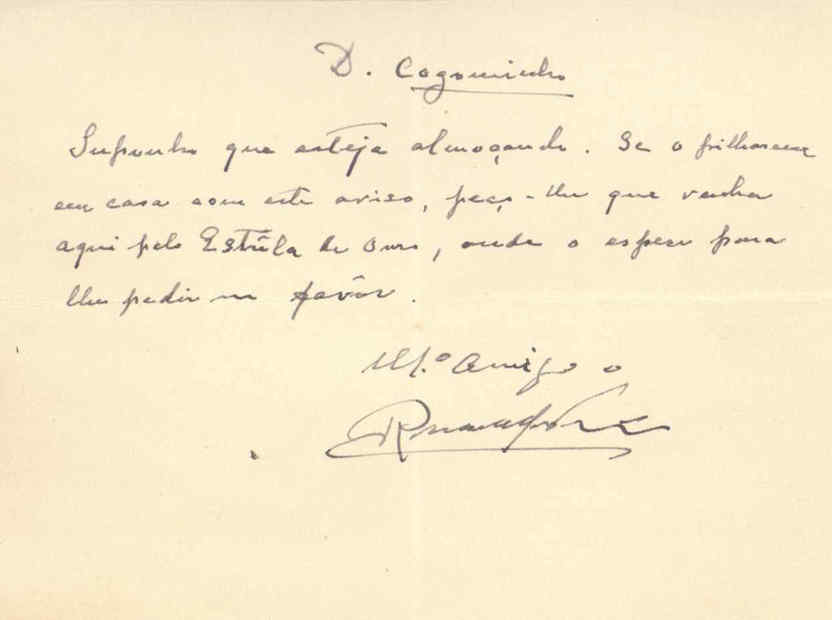 D. Cogominho
Suponho que esteja almoçando. Se o pilharem
em casa com este aviso, peço-lhe que venha
aqui pelo Estrêla de Ouro, onde o espero para
lhe pedir um favôr.
M.º Amigo